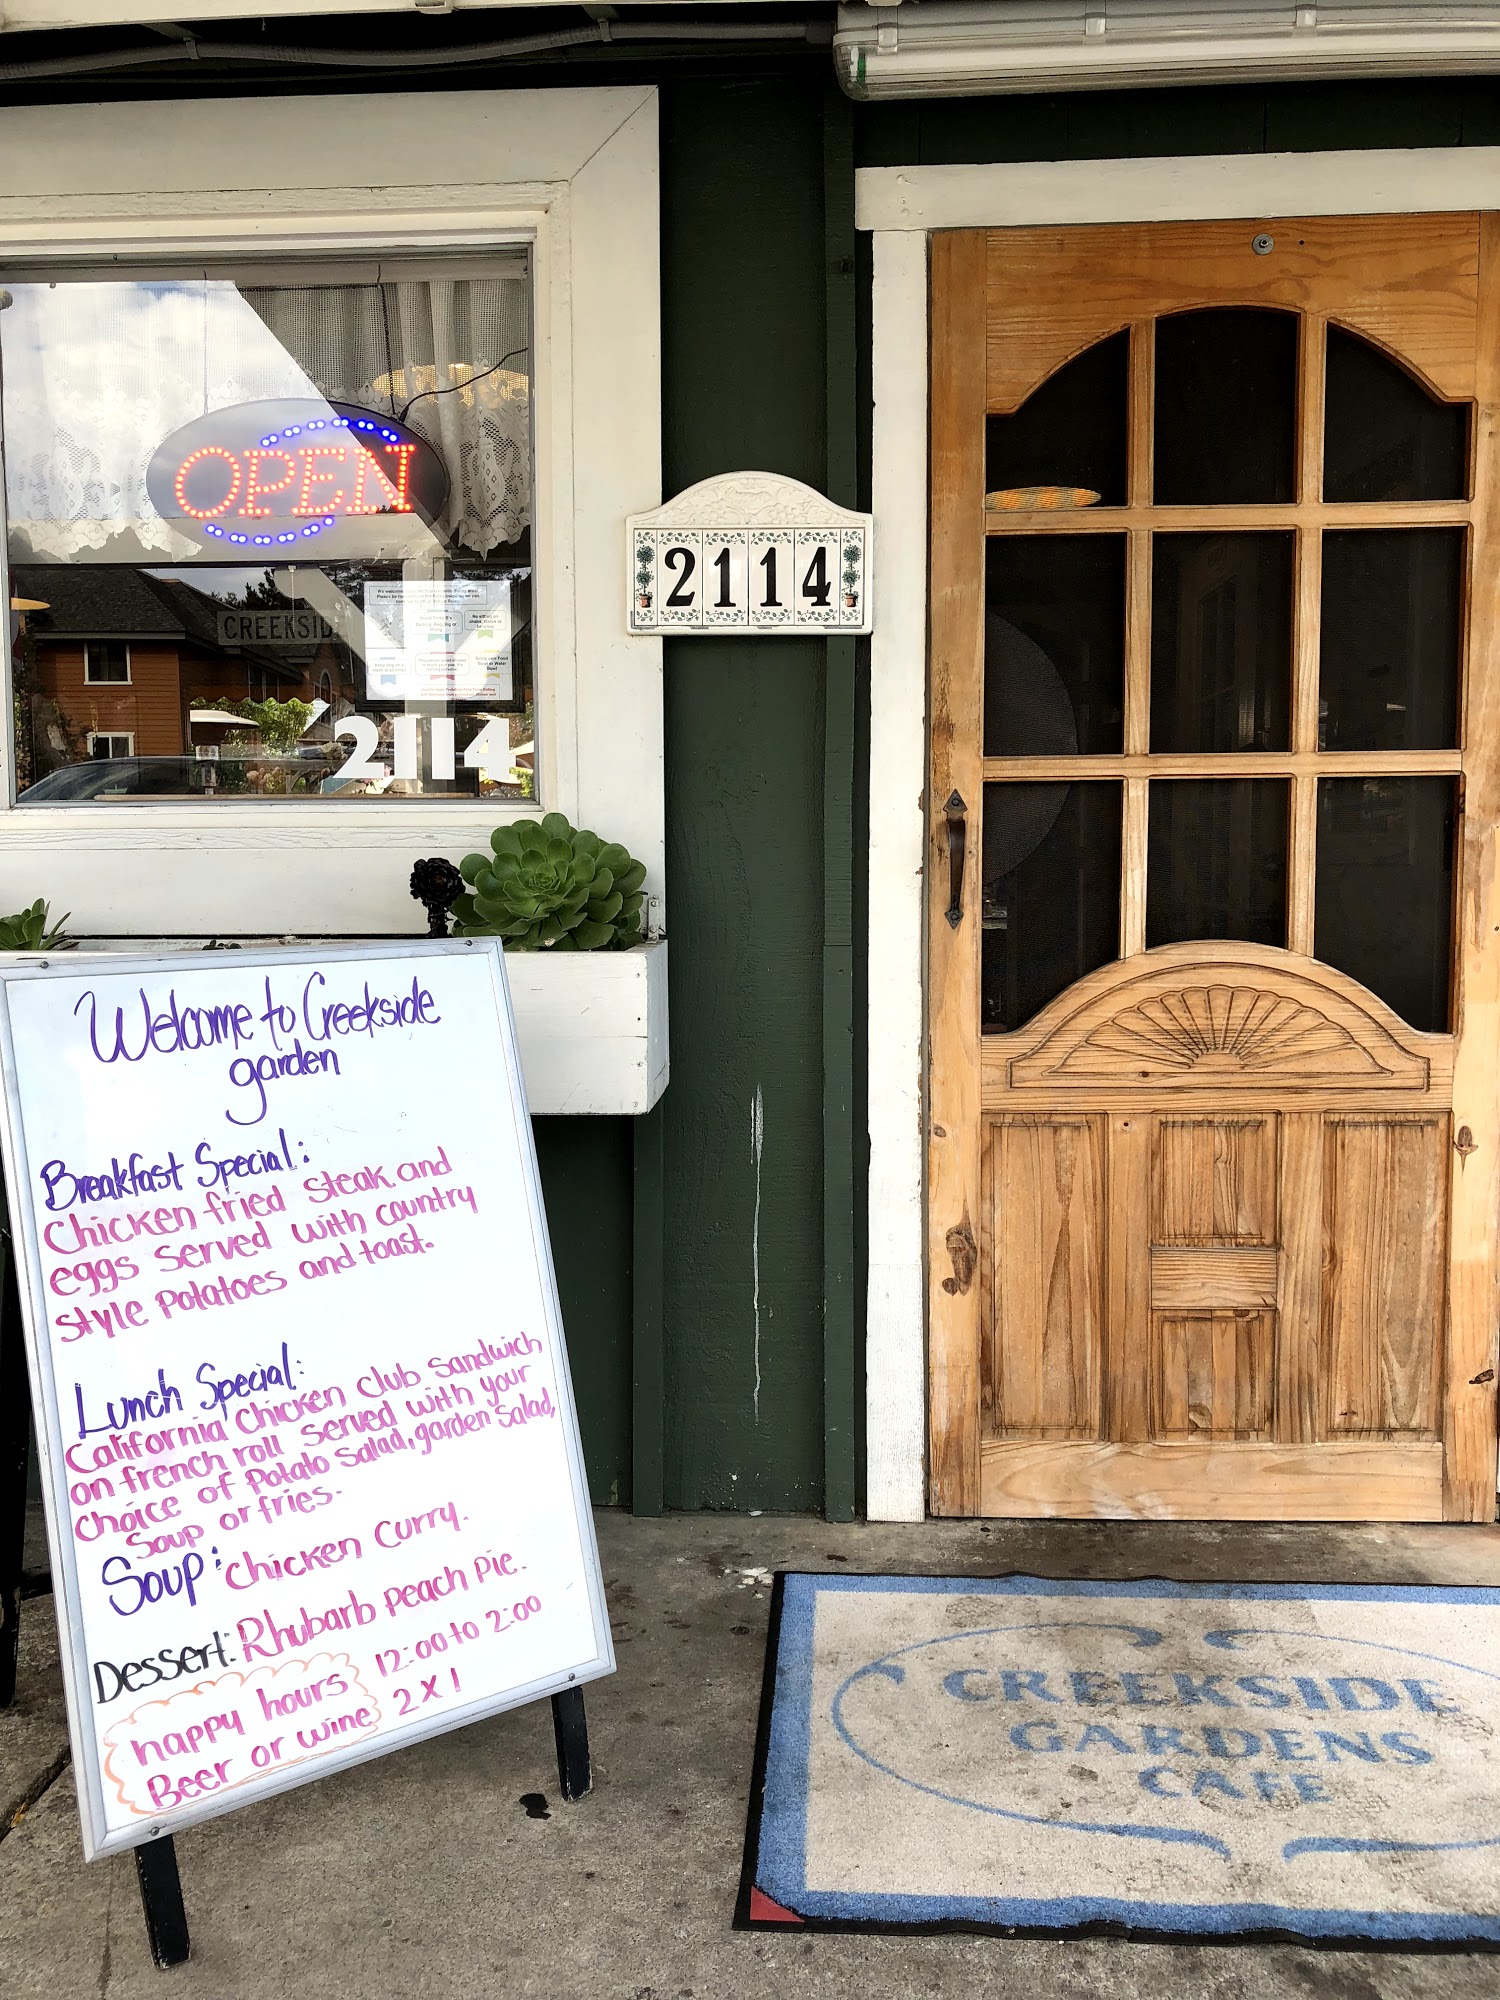 OPEN
CREEKSID
2114
2114
Welcome to Creekside
garden
Breakfast Special:
Chicken fried steak and
eggs served with country
style potatoes and toast.
Lunch Special:
California Chicken Club Sandwich
on french roll served with your
choice of Potato Salad, garden Salad,
Soup or fries.
Soup: Chicken Curry.
Dessert: Rhubarb Peach Pie.
happy hours 12:00 to 2:00
Beer or wine 2 x 1
CREEKSIDE
GARDENS
CAFE